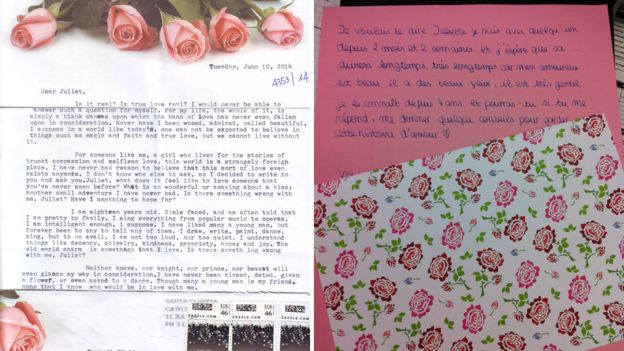 Tuesday, June 10, 2014
4353/14
Dear Juliet,
Is it real? Is true love real? I would never be able to
answer such a question for myself. For my life, the whole of it, is
simply a blank canvas upon which the hand of Love has never even fallen
upon in consideration. Never have I been wooed, admired, called beautiful.
I suppose in a world like today's, one can not be expected to believe in
things such as magic and faith and true love, but we cannot live without
it.
For someone like me, a girl who lived for the stories of
truest compassion and selfless love, this world is a strangely foreign
place. I have never had reason to believe that this sort of love even
exists anymore. I don't know who else to ask, so I decided to write to
you and ask you. Juliet, what does it feel like to love someone that
you've never seen before? What is so wonderful or amazing about a kiss;
another small adventure I have never had. Is there something wrong with
me, Juliet? Have I anything to hope for?
I am eighteen years old. faced, and am often told that
I am pretty by family. I sing everything from popular music to operas.
I am intelligent enough, i suppose, I have liked many a young man, but
forever been to shy to tell any of them. I draw, write, paint, dance,
sing, but to no avail. I am not too loud, nor too quiet. I understand
things like decency, chivalry, kindness, propriety, hopes and joy. The
old world charm is something that I love. Is there something wrong
with me, Juliet?
Neither knave, nor knight, nor prince, nor beast will
even glance my way in consideration. I have never been kissed, dated, given
a flower, or even asked to a dance. Though many a young man is my friend,
none that I know who would be in love with me.
SANTA
CA
11 JU
PM 3 L
US
46
ZAZZLE.COM
US
46
ZAZZLE.COM
US
46
ZAZZLE.COM
Je voulais te dire Juliette je suis avec quelqu'un
depuis 2 mois et 2 semaines et j'espère que sa
durera longtemps, très longtemps car mon amoureux
est beau il a des beau yeux, il est très gentil
je le connaît depuis 4 ans et pourrais-tu si tu me
répond, me donner quelque conseils pour garder
cette histoire d'amour